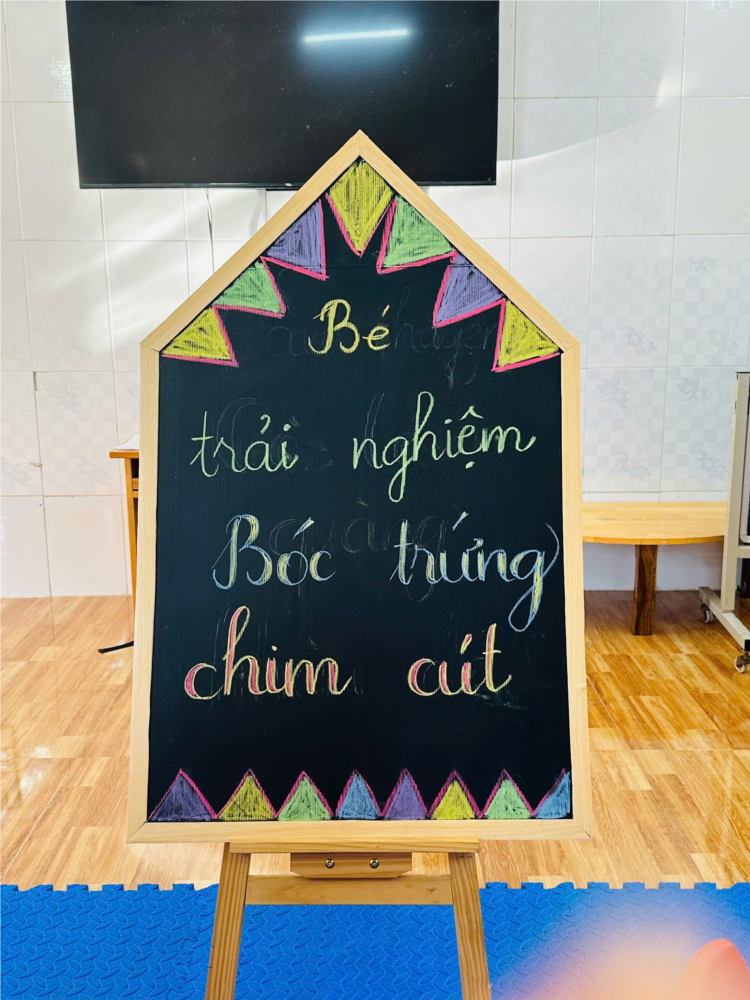 Bé
trải nghiệm
Bóc trứng
chim cút